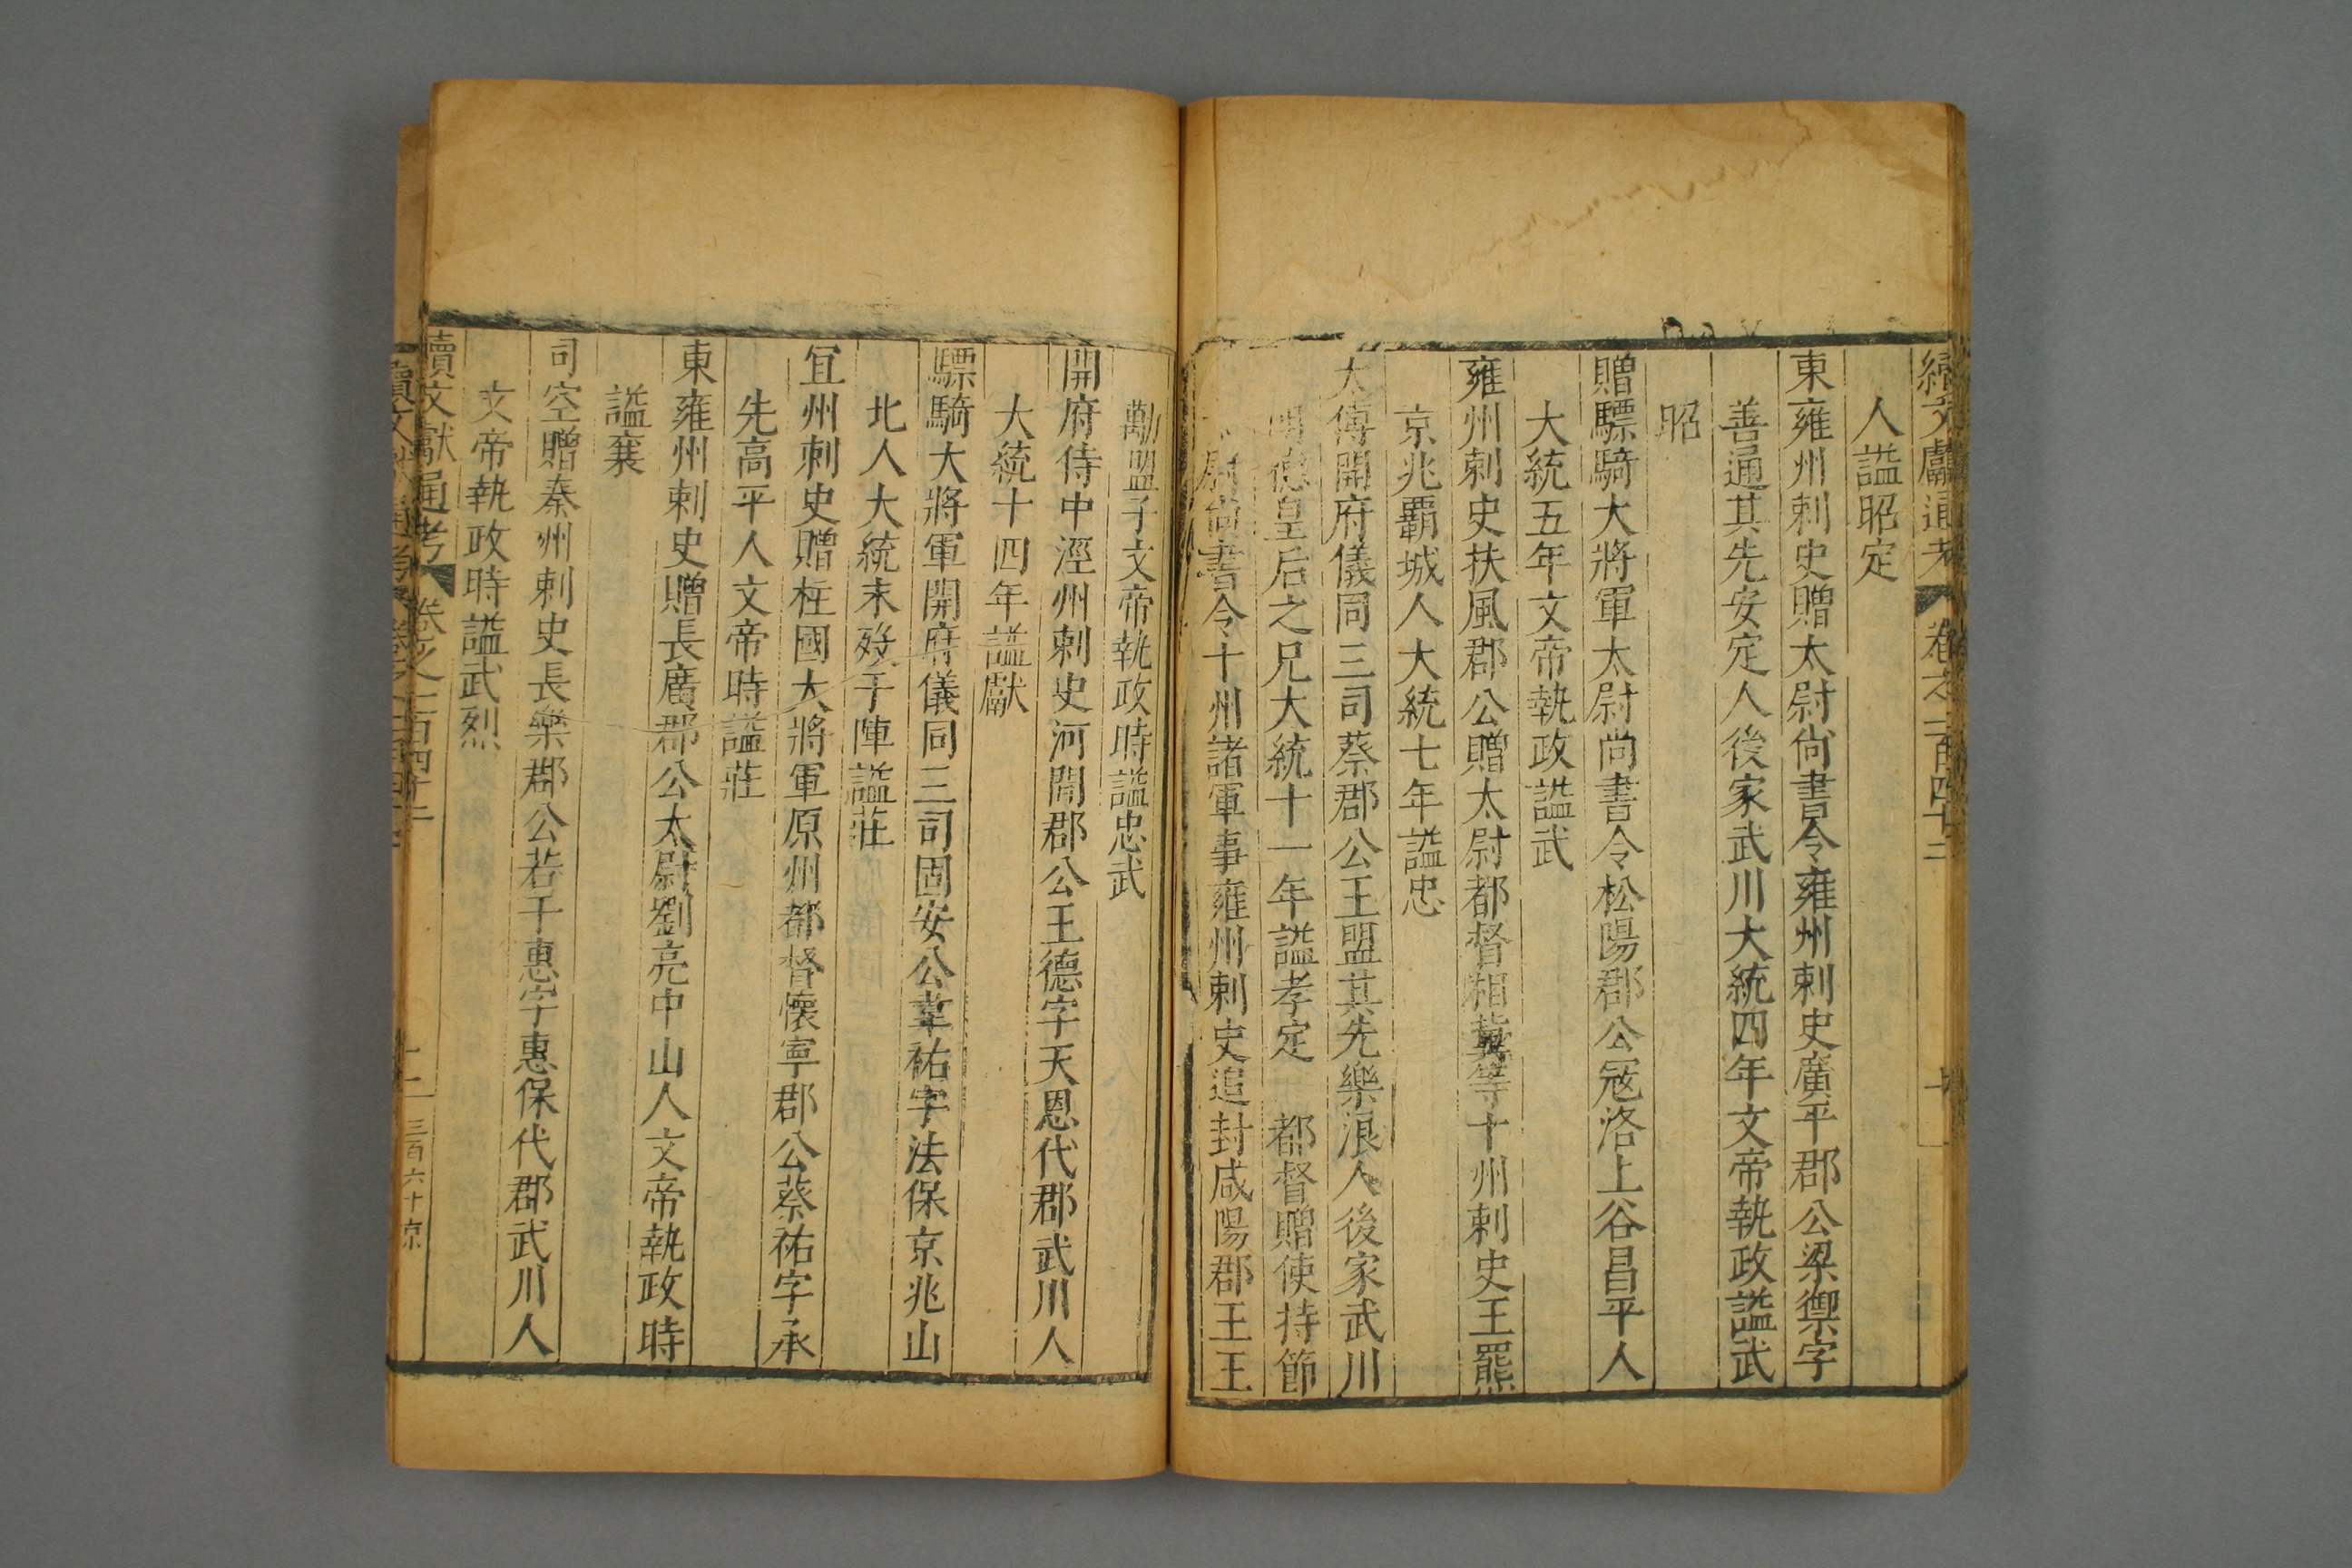 續文獻通考 卷之一百四十二
人謚昭定
東雍州刺史贈太尉尚書令雍州刺史廣平郡公梁禦字
善通其先安定人後家武川大統四年文帝執政謚武
昭
贈驃騎大將軍太尉尚書令松陽郡公冦洛上谷昌平人
大統五年文帝執政謚武
雍州刺史扶風郡公贈太尉都督相冀等十州刺史王羆
京兆覇城人大統七年謚忠
太傅開府儀同三司蔡郡公王盟其先樂浪人後家武川
明德皇后之兄大統十一年謚孝定 都督贈使持節
尉尚書令十州諸軍事雍州刺史追封咸陽郡王王
勱盟子文帝執政時謚忠武
開府侍中涇州刺史河間郡公王德字天恩代郡武川人
大統十四年謚獻
驃騎大將軍開府儀同三司固安公韋祐字法保京兆山
北人大統末歿于陣謚莊
宜州刺史贈柱國大將軍原州都督懷寧郡公蔡祐字承
先高平人文帝時謚莊
東雍州刺史贈長廣郡公太尉劉亮中山人文帝執政時
謚襄
司空贈秦州刺史長樂郡公若干惠字惠保代郡武川人
文帝執政時謚武烈
續文獻通考 卷之一百四十二 十一 三百六十 京